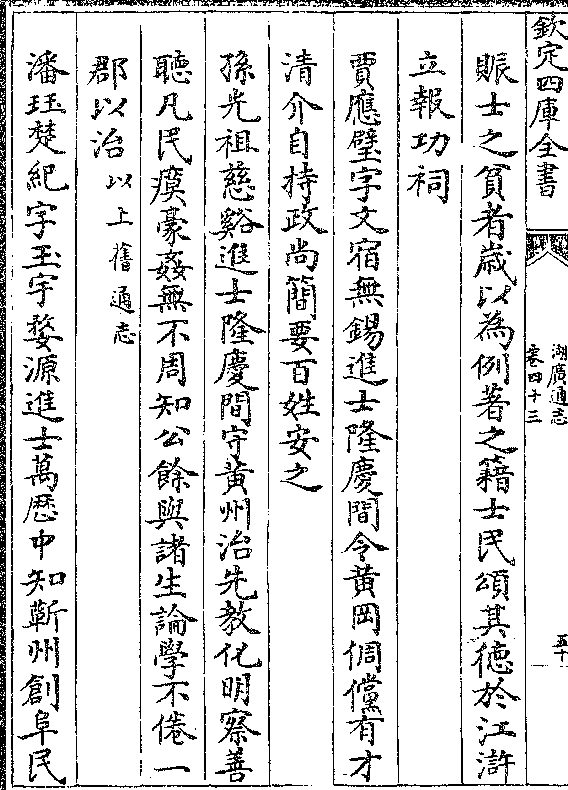 欽定四庫全書
湖廣通志
卷四十三
五十
賑士之貧者歲以為例著之籍士民頌其德於江滸
立報功祠
賈應璧字文宿無錫進士隆慶間令黃岡倜儻有才
清介自持政尚簡要百姓安之
孫光祖慈谿進士隆慶間守黃州治先教化明察善
聽凡民瘼豪姦無不周知公餘與諸生論學不倦一
郡以治以上舊通志
潘珏楚紀字玉宇婺源進士萬歴中知蘄州創阜民